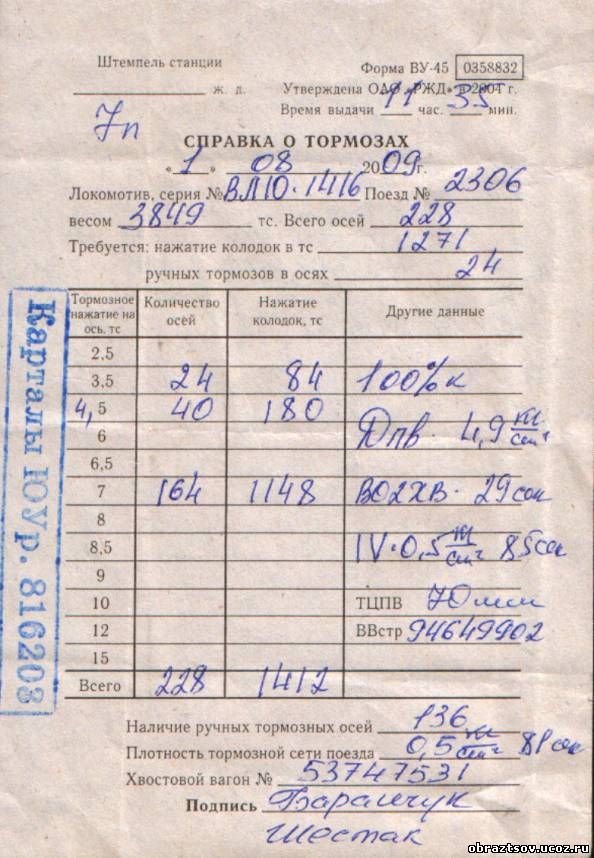 Штемпель станции
Форма ВУ-45 0358832
ж. д. Утверждена ОАО «РЖД» в 2004 г.
Время выдачи 11 час. 35 мин.
7п
СПРАВКА О ТОРМОЗАХ
«1» 08 2009 г.
Локомотив, серия № ВЛ10-1416 Поезд № 2306
весом 3849 тс. Всего осей 228
Требуется: нажатие колодок в тс 1271
ручных тормозов в осях 24
Тормозное нажатие на ось. тс Количество осей Нажатие колодок, тс Другие данные
2,5
3,5 24 84 100% к
4,5 40 180
6 Дпв - 4,9 кг/см²
6,5
7 164 1148 ВО2ХВ - 29 сек
8
8,5 IV-0,5 кг/см² 85 сек
9
10 ТЦПВ 70 мм
12 ВВстр 94649902
15
Всего 228 1412
Наличие ручных тормозных осей 136
Плотность тормозной сети поезда 0,5 кг/см² 81 сек
Хвостовой вагон № 53747531
Подпись Баранчук
Шестак
Карталы ЮУр. 816203
obraztsov.ucoz.ru